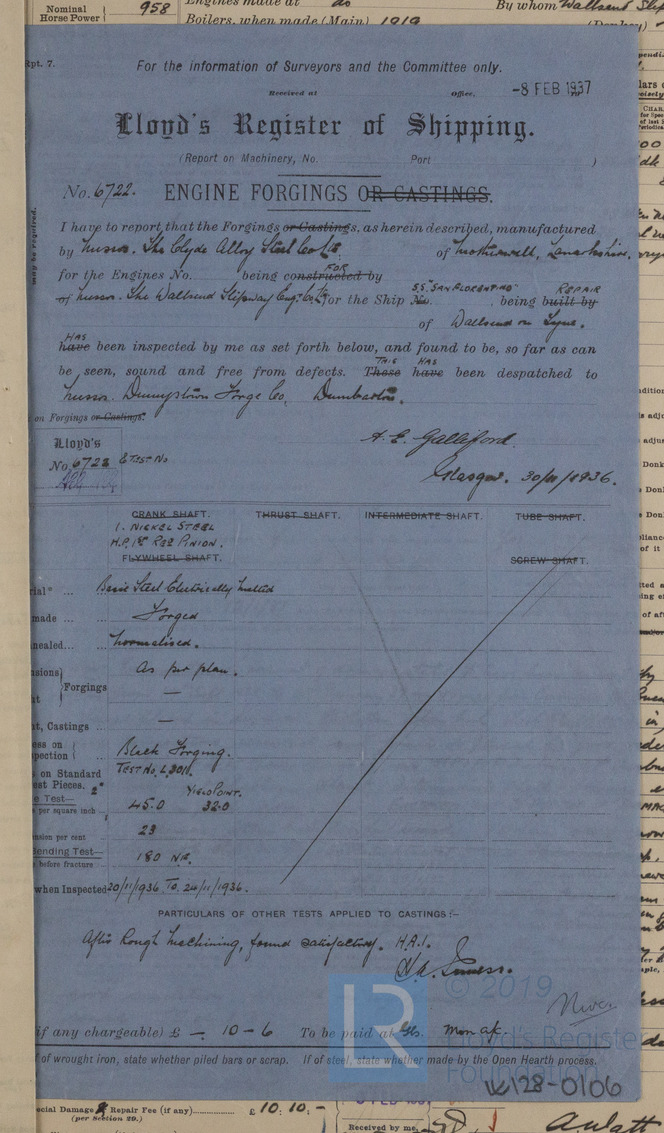 Nominal
Horse Power
958
Engines made at
do
By whom Wallsend Slip
Boilers, when made (Main) 1919
(Donkey)
Rpt. 7.
For the information of Surveyors and the Committee only.
Received at
Office,
-8 FEB 1937
Lloyd's Register of Shipping.
(Report on Machinery, No.
Port
)
No. 6722.
ENGINE FORGINGS OR CASTINGS.
I have to report that the Forgings or Castings, as herein described, manufactured
by Messrs. The Clyde Alloy Steel Co Ltd. of Motherwell, Lanarkshire,
for the Engines No. being constructed by
FOR
of Messrs. The Wallsend Slipway Eng. Co. Ltd for the Ship No. S.S. "SAN FLORENTINO", being built by
REPAIR
of Wallsend on Tyne.
HAS
have been inspected by me as set forth below, and found to be, so far as can
THIS HAS
be seen, sound and free from defects. These have been despatched to
Messrs. Dennystown Forge Co. Dumbarton.
on Forgings or Castings:
Lloyd's
No. 6722 & TEST No
A. E. Galliford.
Glasgow. 30/11/1936.
CRANK SHAFT.
THRUST SHAFT.
INTERMEDIATE SHAFT.
TUBE SHAFT.
1. NICKEL STEEL
H.P. 1st RED PINION.
FLYWHEEL SHAFT.
SCREW SHAFT.
rial* ... Basic Steel Electrically melted
made ... Forged
nealed... Normalised.
nsions As per plan.
Forgings —
nt, Castings .. —
ess on
spection Black Forging.
s on Standard TEST No. L3011.
est Pieces. 2"
e Test— YIELD POINT.
per square inch 45.0 32.0
nsion per cent 23
Bending Test—
before fracture 180 N.F.
when Inspected 20/11/1936 TO 24/11/1936.
PARTICULARS OF OTHER TESTS APPLIED TO CASTINGS:—
After Rough Machining, found satisfactory. H.A.I.
H.A. Inness.
© 2019
if any chargeable) £ — 10 - 6 To be paid at Gls.
Lloyd's Register
Foundation
of wrought iron, state whether piled bars or scrap. If of steel, state whether made by the Open Hearth process.
W128-0106
ecial Damage & Repair Fee (if any)
£ 10.10.-
(per Section 29.)
Received by me,